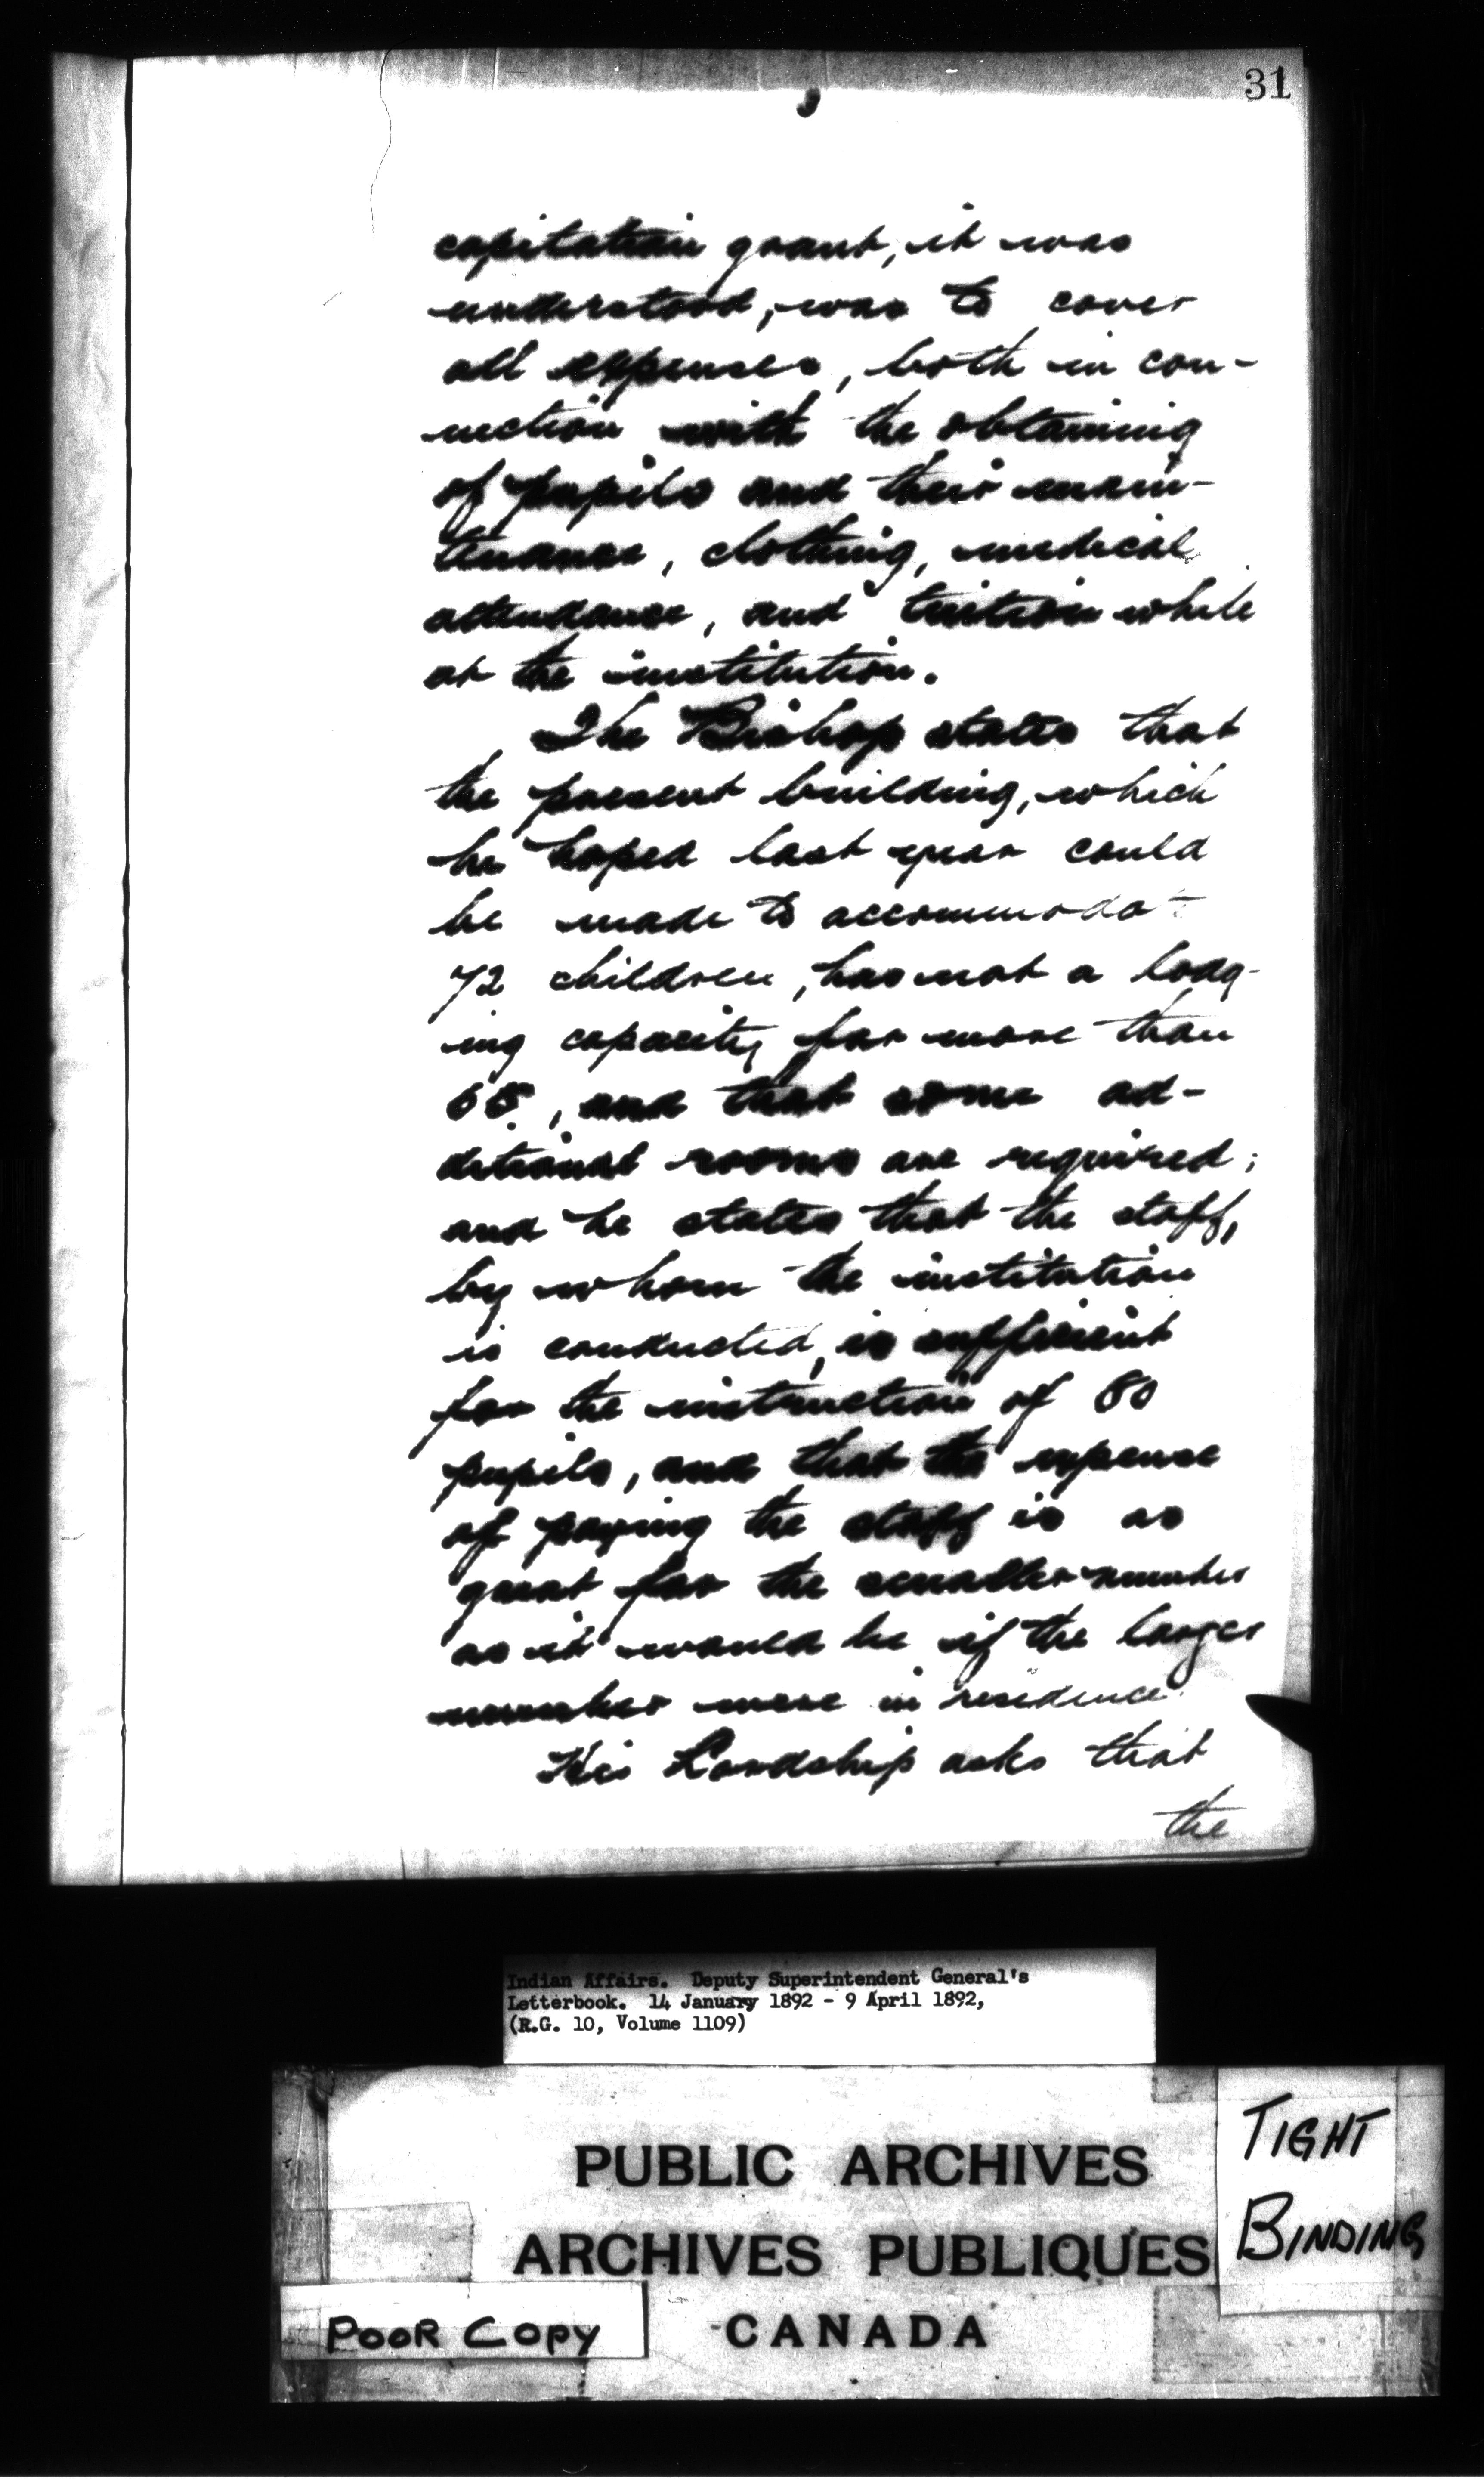 31
capitation grant, it was
understood, was to cover
all expenses, both in con-
nection with the obtaining
of pupils and their main-
tenance, clothing, medical
attendance, and tuition while
at the institution.
The Bishop states that
the present building, which
he hoped last year could
be made to accommodate
72 children, has not a lodg-
ing capacity for more than
65, and that some ad-
ditional rooms are required;
and he states that the staff,
by whom the institution
is conducted, is sufficient
for the instruction of 80
pupils, and that the expense
of paying the staff is as
great for the smaller number
as it would be if the larger
number were in residence.
His Lordship asks that
the
Indian Affairs. Deputy Superintendent General's
Letterbook. 14 January 1892 - 9 April 1892,
(R.G. 10, Volume 1109)
PUBLIC ARCHIVES
ARCHIVES PUBLIQUES
CANADA
TIGHT
BINDING
POOR COPY